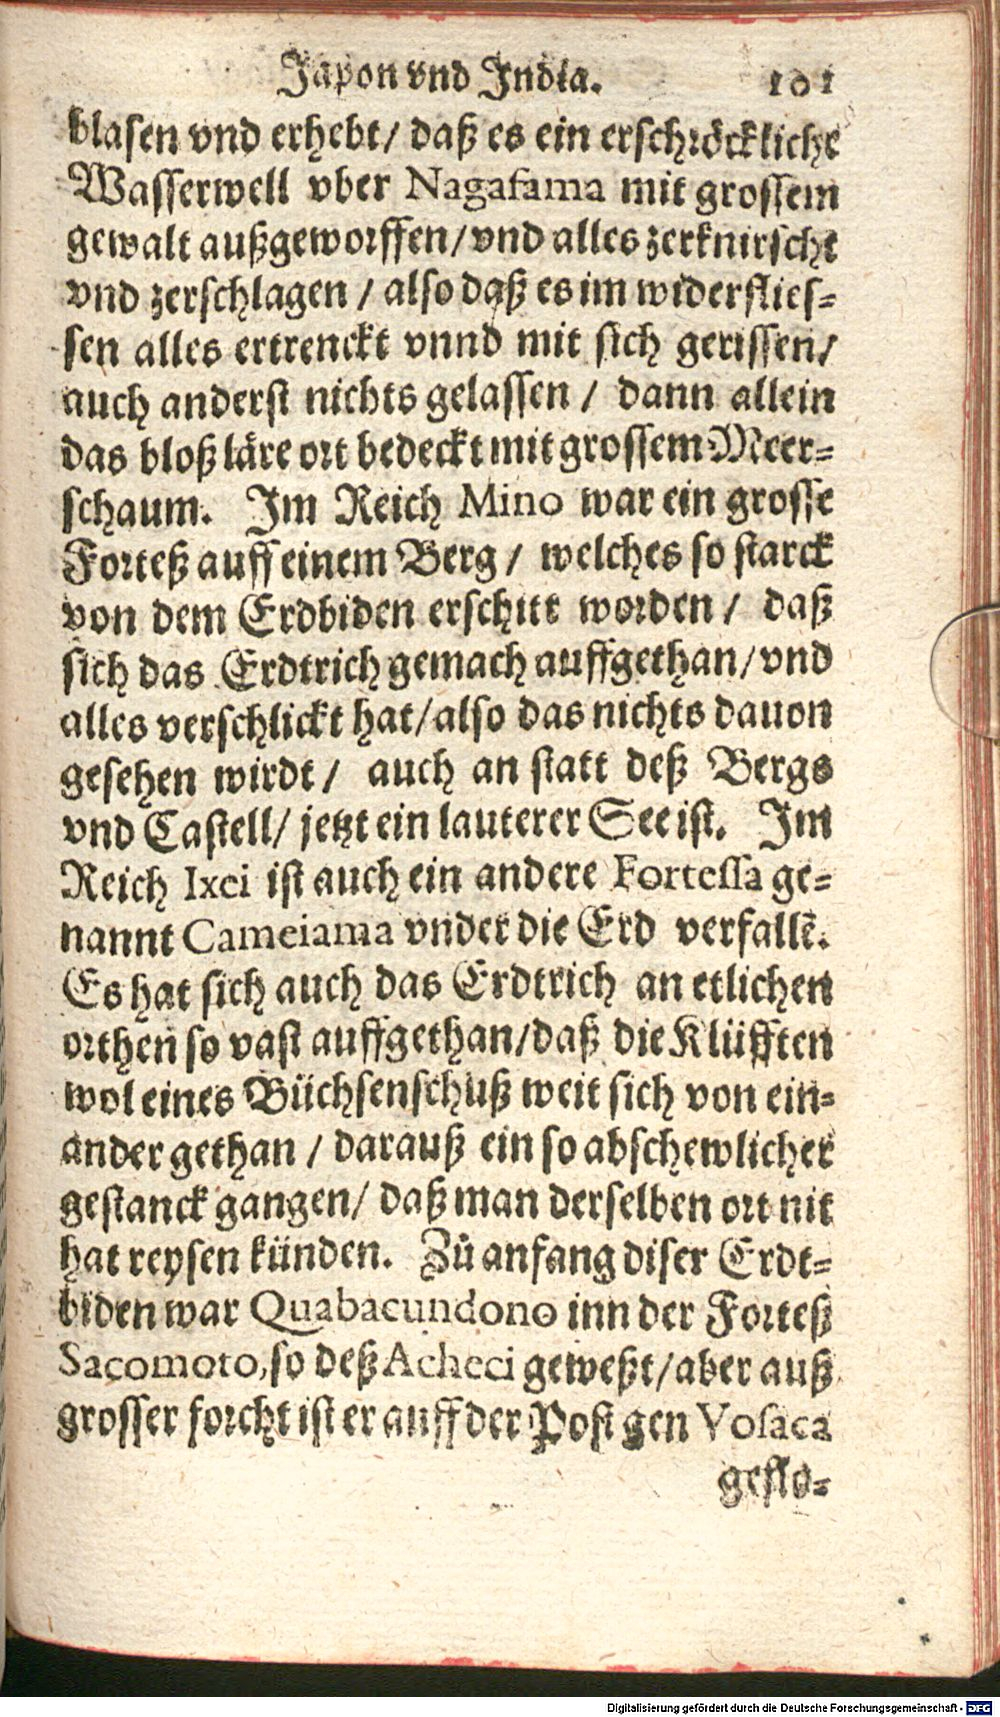 Japon vnd India. 101
blasen vnd erhebt/ daß es ein erschröckliche
Wasserwell vber Nagafama mit grossem
gewalt außgeworffen/ vnd alles zerknirscht
vnd zerschlagen / also daß es im widerflies-
sen alles ertrenckt vnnd mit sich gerissen/
auch anderst nichts gelassen / dann allein
das bloß läre ort bedeckt mit grossem Meer-
schaum. Im Reich Mino war ein grosse
Forteß auff einem Berg / welches so starck
von dem Erdbiden erschitt worden / daß
sich das Erdtrich gemach auffgethan/ vnd
alles verschlickt hat/ also das nichts dauon
gesehen wirdt / auch an statt deß Bergs
vnd Castell/ jetzt ein lauterer See ist. Im
Reich Ixei ist auch ein andere Fortessa ge-
nannt Cameiama vnder die Erd verfallẽ.
Es hat sich auch das Erdtrich an etlichen
orthen so vast auffgethan/ daß die Klüfften
wol eines Büchsenschuß weit sich von ein-
ander gethan / darauß ein so abschewlicher
gestanck gangen/ daß man derselben ort nit
hat reysen künden. Zů anfang diser Erdt-
biden war Quabacundono inn der Forteß
Sacomoto, so deß Acheci geweßt/ aber auß
grosser forcht ist er auff der Post gen Vosaca
geflo-
Digitalisierung gefördert durch die Deutsche Forschungsgemeinschaft - DFG